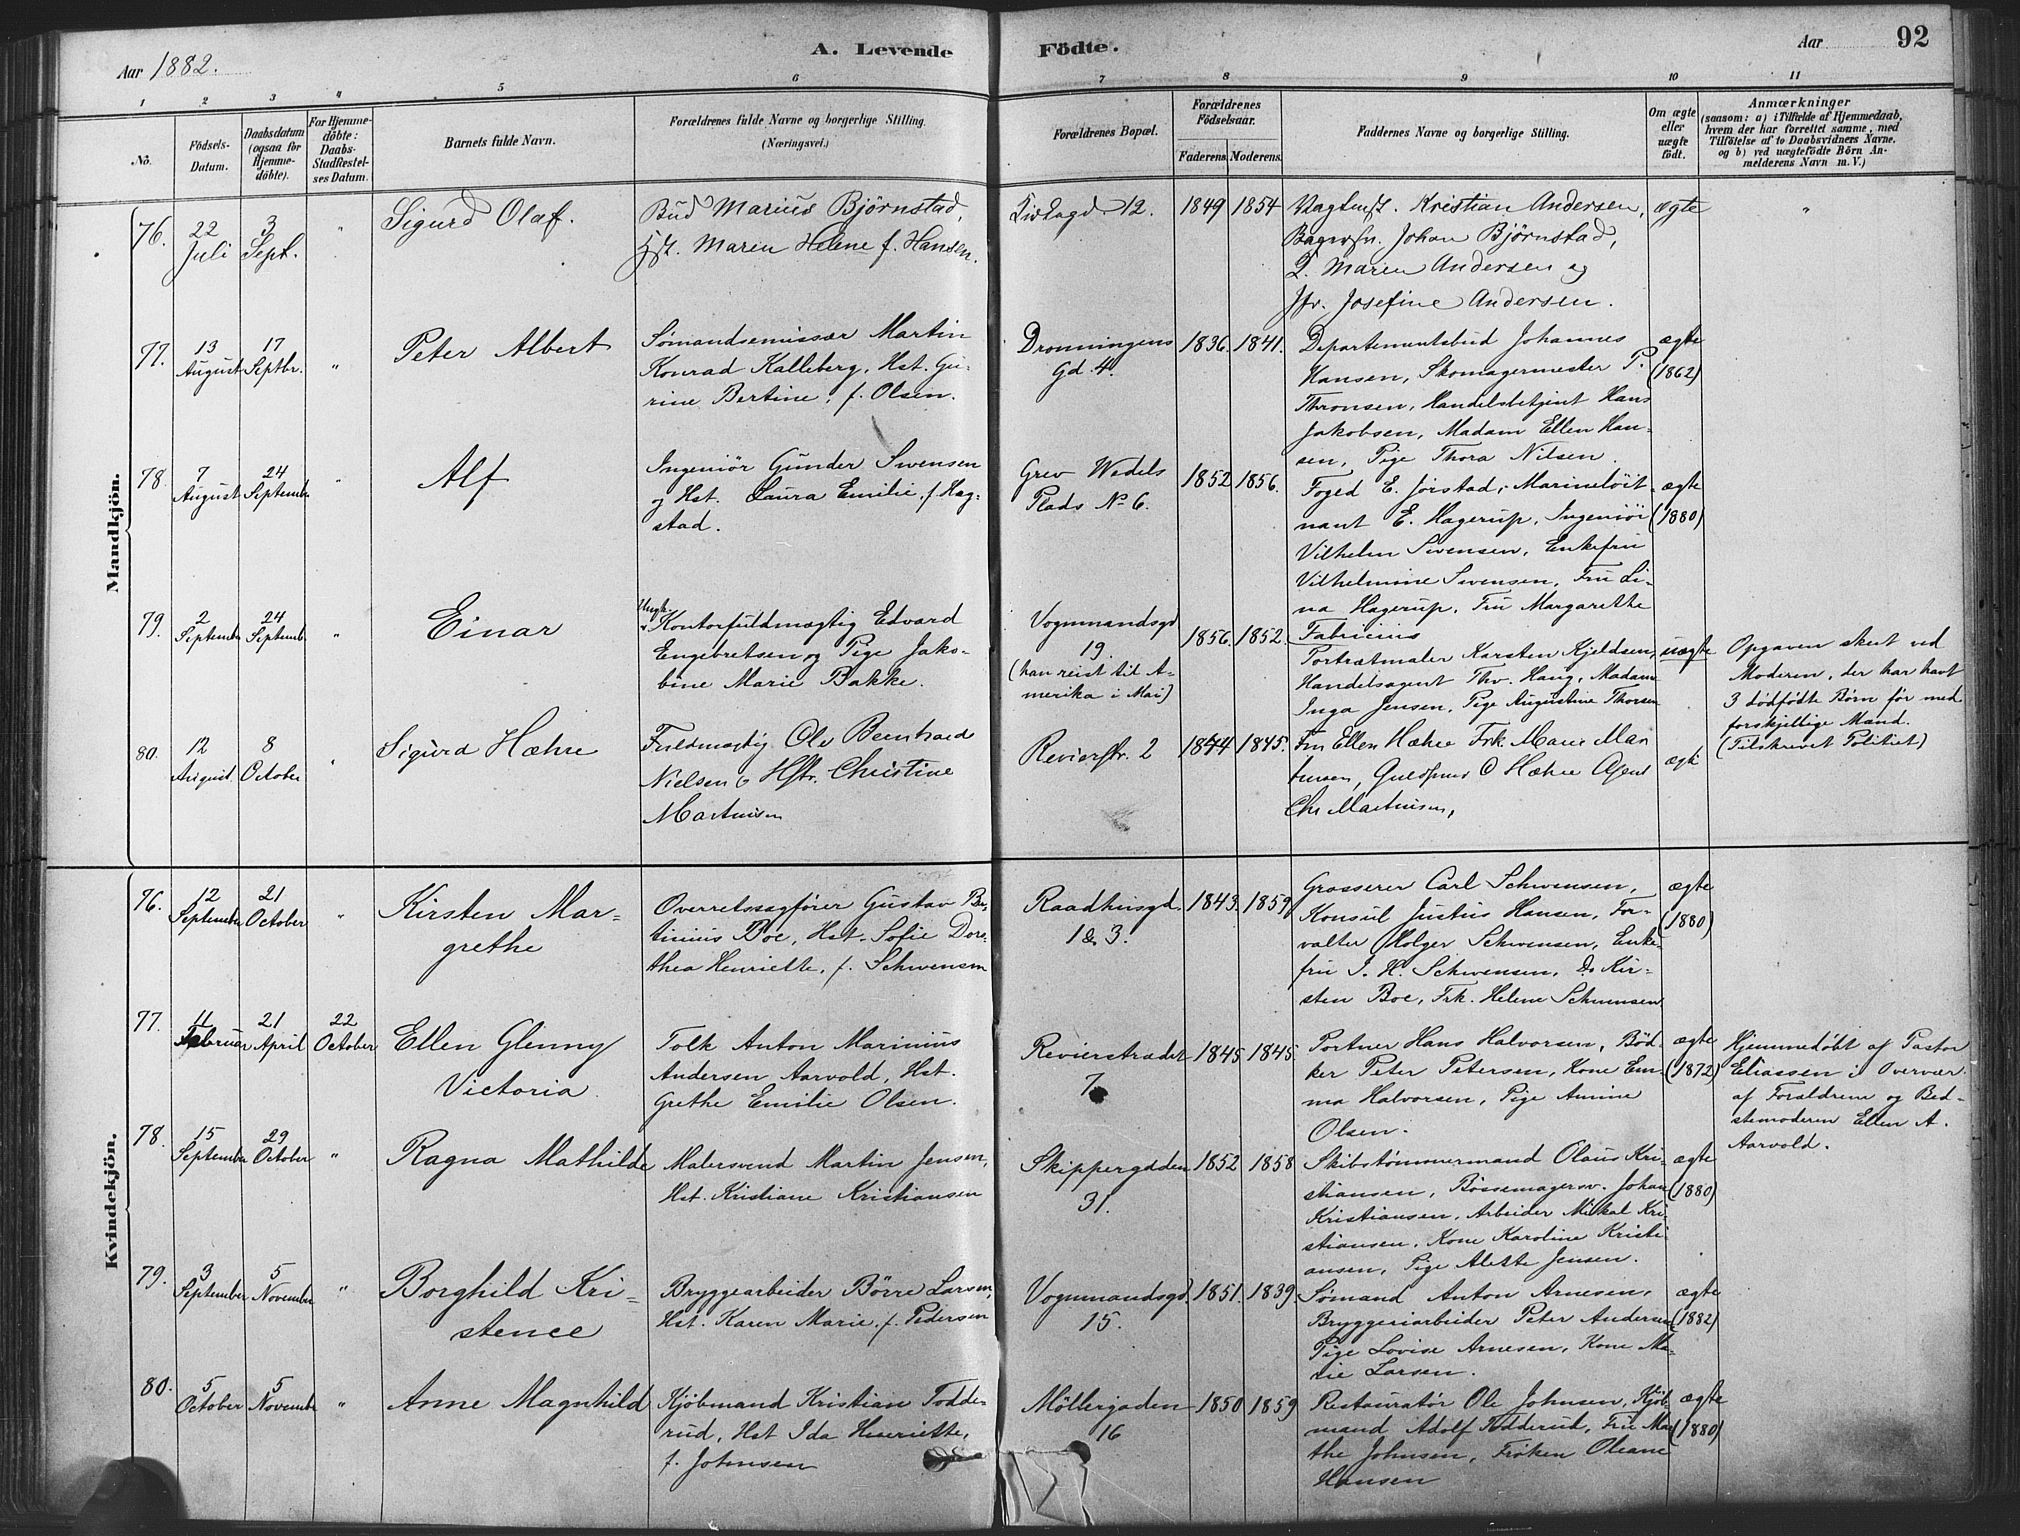 Aar 1882.
A. Levende
Födte.
Aar
92
1 2 3 4 5 6 7 8 9 10 11
No.
Födsels-
Datum.
Daabsdatum
(ogsaa for
Hjemme-
döbte).
For Hjemme-
döbte:
Daabs-
Stadfæstel-
ses Datum.
Barnets fulde Navn.
Forældrenes fulde Navne og borgerlige Stilling.
(Næringsvei.)
Forældrenes Bopæl.
Forældrenes
Födselsaar.
Faderens. Moderens.
Faddernes Navne og borgerlige Stilling.
Om ægte
eller
uægte
födt.
Anmærkninger
(saasom: a) i Tilfælde af Hjemmedaab,
hvem der har forrettet samme, med
Tilföielse af to Daabsvidners Navne.
og b) ved uægtefödte Börn An-
melderens Navn m.V.)
Mandkjön.
76.
22
Juli
3
Sept.
"
Sigurd Olaf.
Bud Marius Bjørnstad,
Hst. Maren Helene f. Hansen.
12.
1849
1854
Kristian Andersen,
Johan Bjørnstad,
Maren Andersen og
Jfr. Josefine Andersen.
ægte
"
77.
13
August
17
Septbr.
"
Peter Albert
Sømandsemissær Martin
Konrad Kalleberg, Hst. Gu-
rine Bertine, f. Olsen.
Dronningens
Gd. 4.
1836.
1841.
Departementsbud Johannes
Hansen, Skomagermester P.
Thronsen, Handelsbetjent Hans
Jakobsen, Madam Ellen Han-
sen, Pige Thora Nilsen.
ægte
(1862)
78.
7
August
24
Septemb.
"
Alf
Ingeniør Gunder Svensen
og Hst. Laura Emilie, f. Hag-
stad.
Grev Wedels
Plads No 6.
1852
1856.
Foged E. Jørstad, Marineløit-
nant E. Hagerup, Ingeniør
Vilhelm Svensen, Enkefru
Vilhelmine Svensen, Fru Li-
na Hagerup, Fru Margarethe
Fabricius
ægte
(1880)
79.
2
September
24
Septemb.
"
Einar
Ungk.
Kontorfuldmægtig Edvard
Engebretsen og Pige Jako-
bine Marie Bakke.
Vognmandsgd
19.
(han reist til A-
merika i Mai)
1856.
1852.
Portrætmaler Karsten Kjeldsen,
Handelsagent Thv. Haug, Madam
Inga Jensen, Pige Augustine Thorsen
uægte
Opgaven skeet ved
Moderen, der har havt
3 dødfødte Børn før med
forskjellige Mænd.
(Tilskrevet Politiet)
80.
12
August.
8
October
"
Sigurd Hæhre
Fuldmægtig Ole Bernhard
Nielsen & Hstr. Christine
Martinsen
Revierstr. 2
1844
1845.
Fru Ellen Hæhre Frk. Marie Mar
tinsen, Guldsmed O Hæhre Agent
Chr Martinsen,
ægte
Kvindekjön.
76.
12
September
21
October
"
Kirsten Mar-
grethe
Overretssagfører Gustav Ber-
tinius Boe, Hst. Sofie Doro-
thea Henriette, f. Schwensen
Raadhusgd.
1 & 3.
1843.
1859
Grosserer Carl Schwensen,
Konsul Justus Hansen, For-
valter Holger Schwensen, Enke-
fru J. H. Schwensen, Do Kir-
sten Boe, Frk. Helene Schwensen
ægte
(1880)
77.
4
Februar
21
April
22
October
Ellen Glenny
Victoria.
Tolk Anton Marinius
Andersen Aarvold, Hst.
Grethe Emilie Olsen.
Revierstrædet
7
1845
1845.
Portner Hans Halvorsen, Bød-
ker Peter Petersen, Kone Em-
ma Halvorsen, Pige Amine
Olsen.
ægte
(1872)
Hjemmedøbt af Pastor
Eliassen i Overvær
af Forældrene og Bed-
stemoderen Ellen A.
Aarvold.
78.
15
September
29
October
"
Ragna Mathilde
Malersvend Martin Jensen,
Hst. Kristiane Kristiansen
Skippergaden
31.
1852
1858
Skibstømmermand Olaus Kri-
stiansen, Bøssemagersv. Johan
Kristiansen, Arbeider Mikal Kri-
stiansen, Kone Karoline Kristi-
ansen, Pige Alette Jensen.
ægte
(1880)
79.
3
September
5
November
"
Borghild Kri-
stence
Bryggearbeider Børre Larsen,
Hst. Karen Marie, f. Pedersen
Vognmandsgd.
15.
1851.
1839.
Sømand Anton Arnesen,
Bryggeriarbeider Peter Andersen
Pige Lovise Arnesen, Kone Ma-
rie Larsen.
ægte
(1882)
80.
5
October
5
Novembr
"
Anne Magnhild
Kjøbmand Kristian Todde-
rud, Hst Ida Henriette,
f. Johnsen
Møllergaden
16
1850
1859
Restauratør Ole Johnsen, Kjøb-
mand Adolf Todderud, Fru Mar
the Johnsen, Frøken Oleane
Hansen
ægte
(1880)